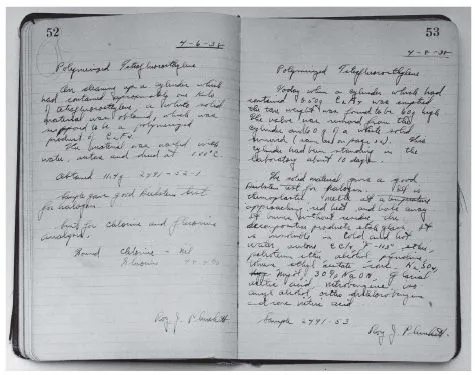 52
4-6-38
Polymerized Tetrafluoroethylene
On cleaning up a cylinder which
had contained approximately one kilo
of tetrafluoroethylene, a white solid
material was obtained, which was
supposed to be a polymerized
product of C2F4.
The material was washed with
water, and dried at 100°C
Obtained 11.4g 2991-52-1
Sample gave good Beilstein test
for halogen.
Sent for chlorine and fluorine
analysis.
Found chlorine - nil
Fluorine
Roy J. Plunkett
53
4-8-38
Polymerized Tetrafluoroethylene
Today when a cylinder which had
contained C2F4 was emptied
the tare weight was found to be 60g high
The valve was removed from the
cylinder and 60g of a white solid
removed (same as on page 52). This
cylinder had been standing in the
laboratory about 10 days.
The solid material gave a good
Beilstein test for halogen. It is
thermoplastic, melts at a temperature
approaching red heat and
it burns without residue, the
decomposition products etch glass. It
is insoluble in cold and hot
water, acetone, ether,
petroleum ether, alcohol, pyridine,
ethyl acetate, H2SO4
30% NaOH, glacial
acetic acid, nitrobenzene,
amyl alcohol, ortho dichlorobenzene
and conc nitric acid
Sample 2991-53
Roy J. Plunkett